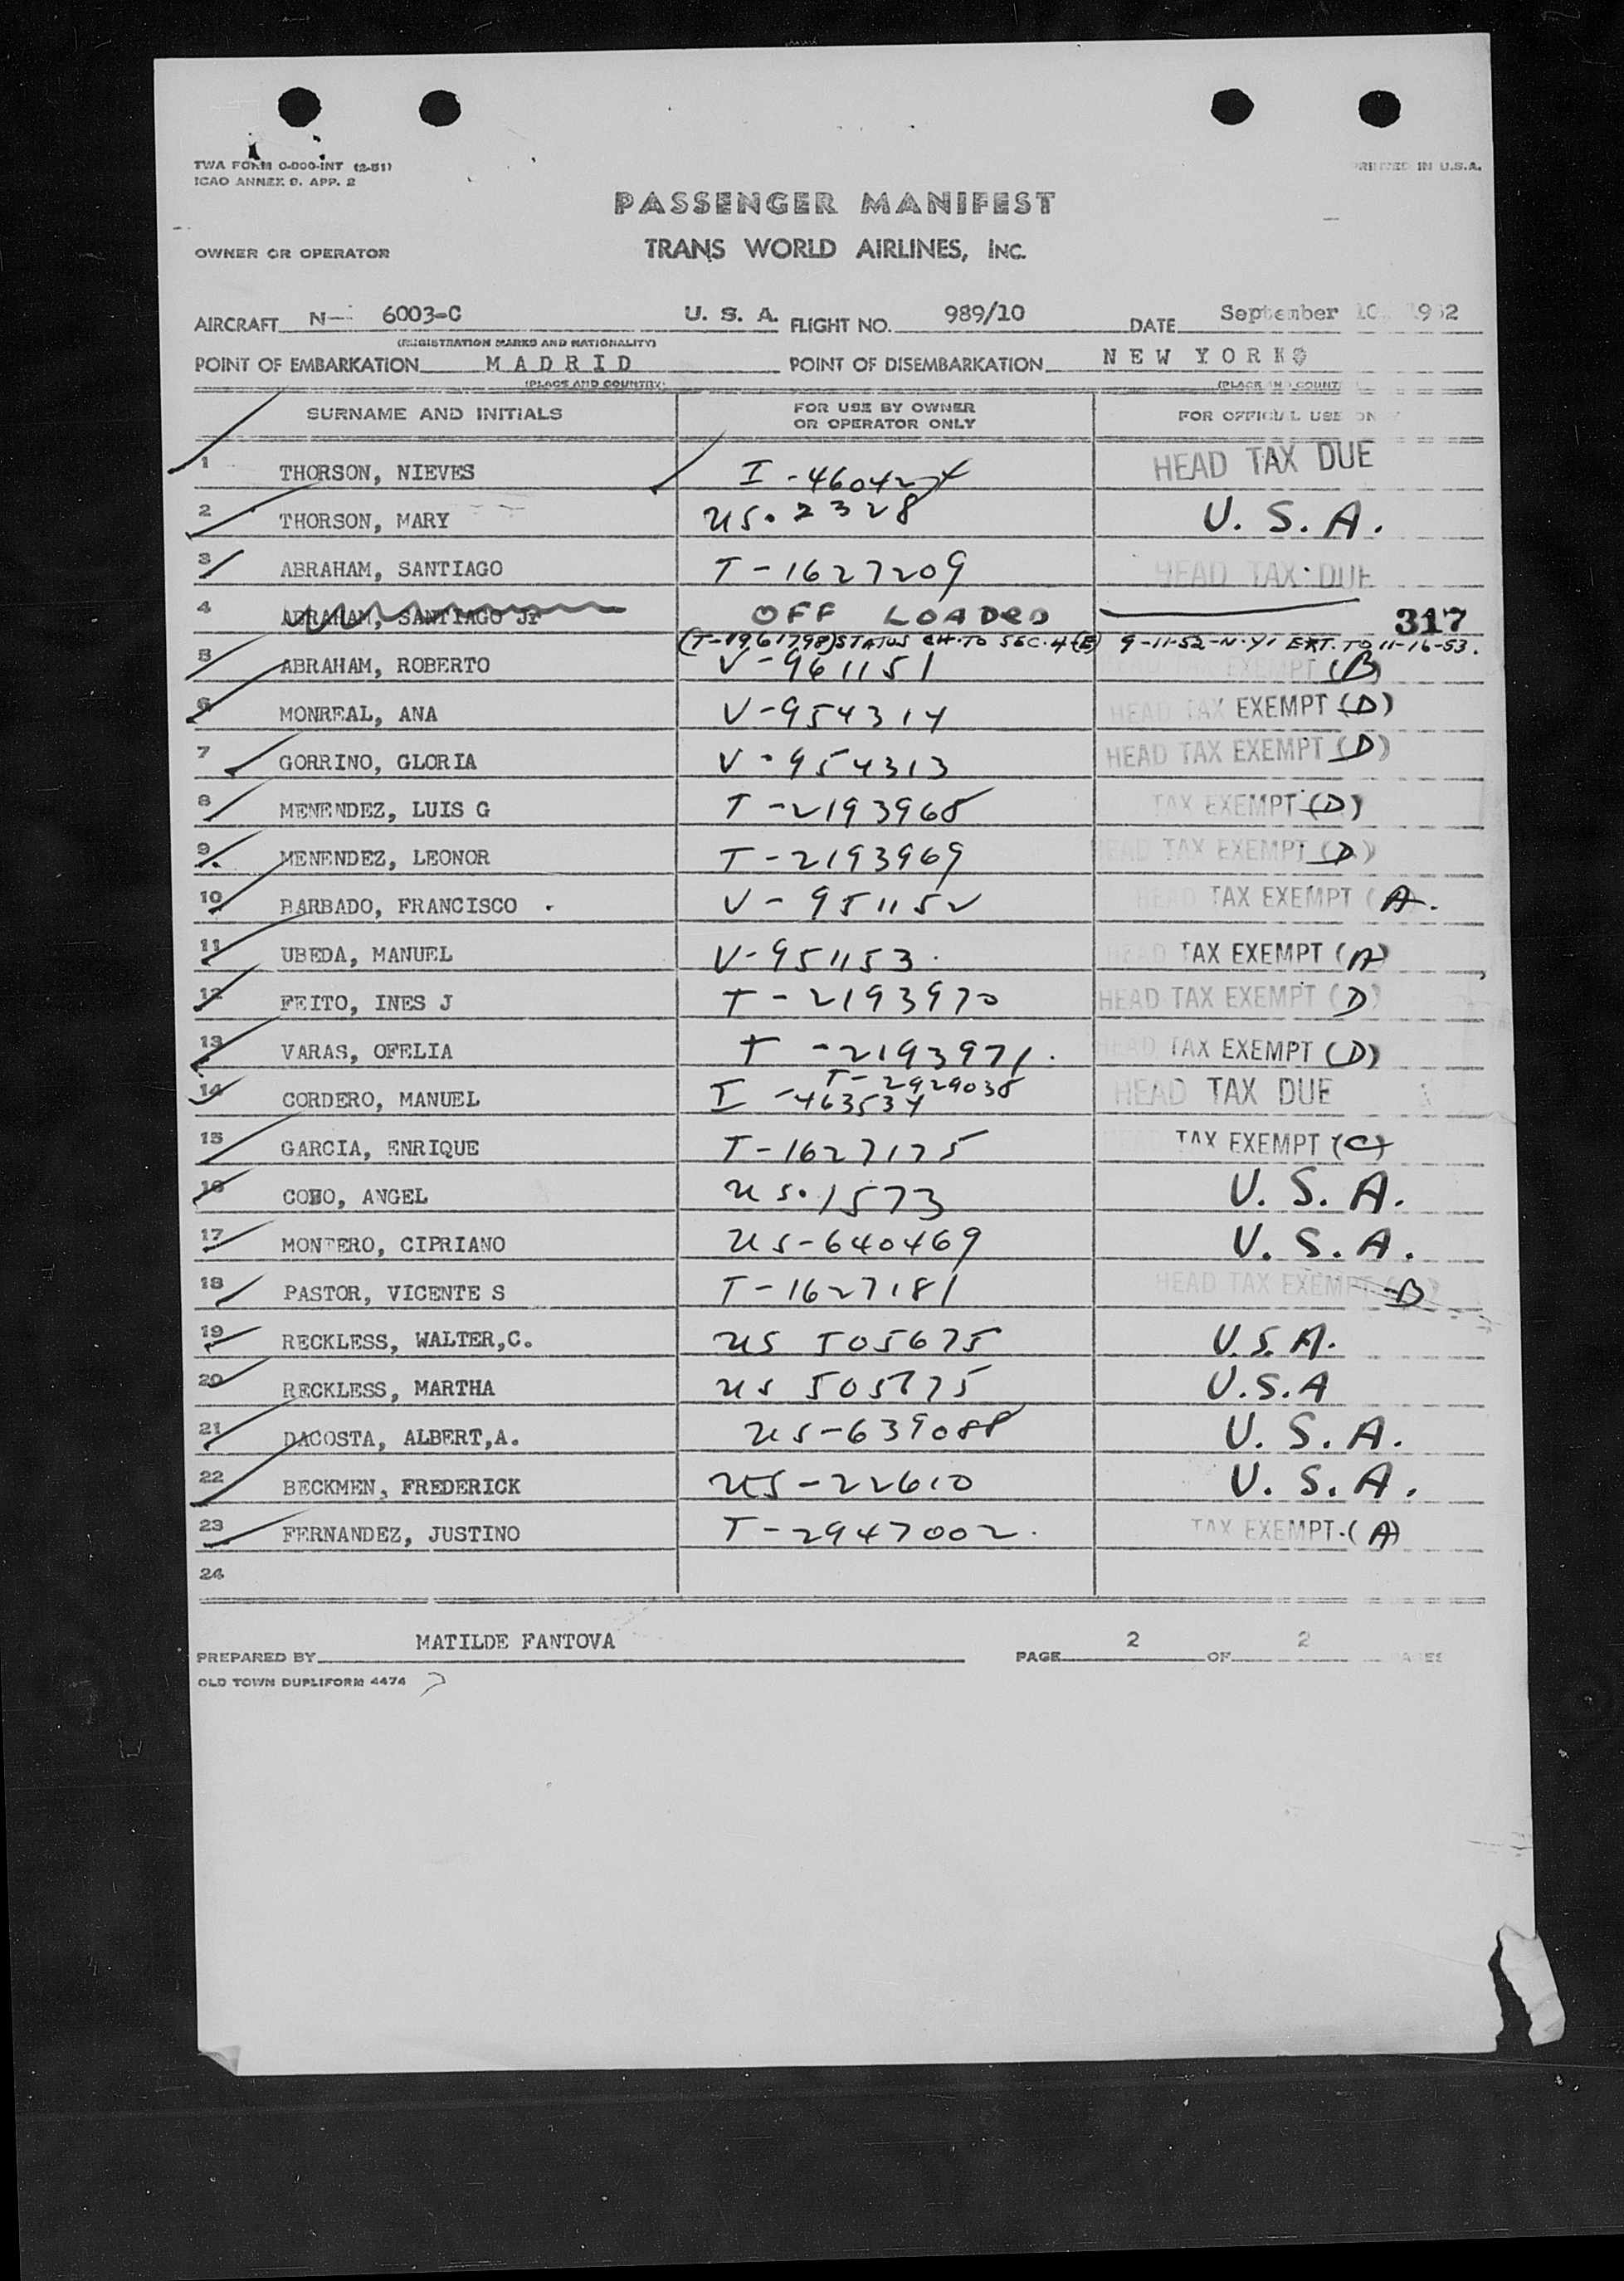 TWA FORM O-800-INT (2-51)
ICAO ANNEX 9. APP. 2
PRINTED IN U.S.A.
PASSENGER MANIFEST
OWNER OR OPERATOR TRANS WORLD AIRLINES, INC.
AIRCRAFT N- 6003-C U. S. A. FLIGHT NO. 989/10 DATE September 10, 1952
(REGISTRATION MARKS AND NATIONALITY)
POINT OF EMBARKATION MADRID POINT OF DISEMBARKATION NEW YORK
(PLACE AND COUNTRY) (PLACE AND COUNTRY)
SURNAME AND INITIALS FOR USE BY OWNER OR OPERATOR ONLY FOR OFFICIAL USE ONLY
1 THORSON, NIEVES I-460424 HEAD TAX DUE
2 THORSON, MARY US. 2328 U. S. A.
3 ABRAHAM, SANTIAGO T-1627209 HEAD TAX DUE
4 ABRAHAM, SANTIAGO Jr OFF LOADED 317
(T-1961798) STATUS CH. TO SEC. 4(E) 9-11-52-N.Y. EXT. TO 11-16-53.
5 ABRAHAM, ROBERTO V-961151 HEAD TAX EXEMPT (B)
6 MONREAL, ANA V-954314 HEAD TAX EXEMPT (D)
7 GORRINO, GLORIA V-954313 HEAD TAX EXEMPT (D)
8 MENENDEZ, LUIS G T-2193968 TAX EXEMPT (D)
9 MENENDEZ, LEONOR T-2193969 HEAD TAX EXEMPT (D)
10 BARBADO, FRANCISCO . V-951152 HEAD TAX EXEMPT (A.
11 UBEDA, MANUEL V-951153. HEAD TAX EXEMPT (A)
12 FEITO, INES J T-2193970 HEAD TAX EXEMPT (D)
13 VARAS, OFELIA T-2193971. HEAD TAX EXEMPT (D)
14 CORDERO, MANUEL I-463534 T-2929038 HEAD TAX DUE
15 GARCIA, ENRIQUE T-1627175 TAX EXEMPT (C)
16 COBO, ANGEL US. 1573 U. S. A.
17 MONTERO, CIPRIANO US-640469 U. S. A.
18 PASTOR, VICENTE S T-1627181 HEAD TAX EXEMPT (D)
19 RECKLESS, WALTER,C. US 505675 U.S.A.
20 RECKLESS, MARTHA US 505675 U.S.A
21 DACOSTA, ALBERT,A. US-639088 U. S. A.
22 BECKMEN, FREDERICK US-22610 U. S. A.
23 FERNANDEZ, JUSTINO T-2947002. TAX EXEMPT (A)
24
PREPARED BY MATILDE FANTOVA PAGE 2 OF 2 PAGES
OLD TOWN DUPLIFORM 4474